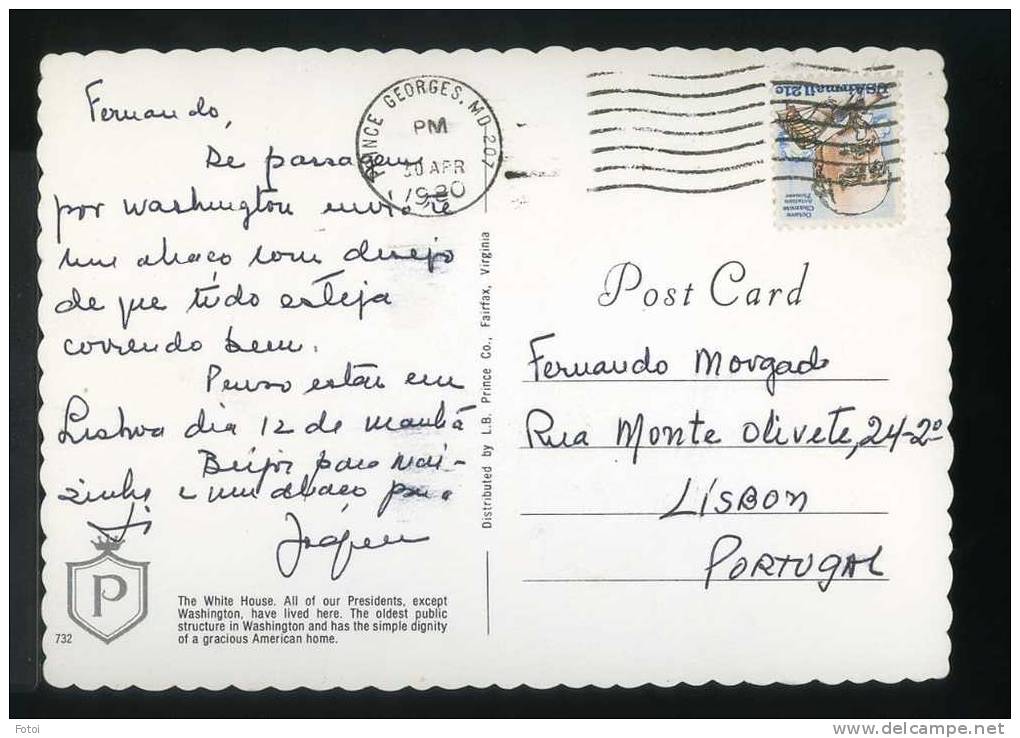 Fernando,
De passagem
por Washington envio-te
um abraço com desejo
de que tudo esteja
correndo bem.
Penso estar em
Lisboa dia 12 de manhã
Beijos para
e um abraço para
ti
P
732
The White House. All of our Presidents, except
Washington, have lived here. The oldest public
structure in Washington and has the simple dignity
of a gracious American home.
Distributed by L.B. Prince Co., Fairfax, Virginia
PRINCE GEORGES, MD 207
PM
30 APR
1980
USAirmail 21c
Octave
Chanute
Aviation
Pioneer
Post Card
Fernando Morgado
Rua Monte Olivete, 24-2º
LISBON
PORTUGAL
Fotoi
www.delcampe.net